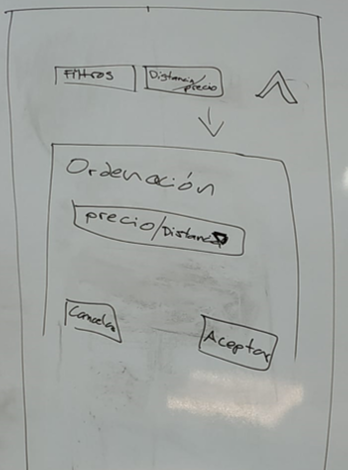 Filtros
Distancia/
precio
Ordenación
precio/Distancia
Cancelar
Aceptar